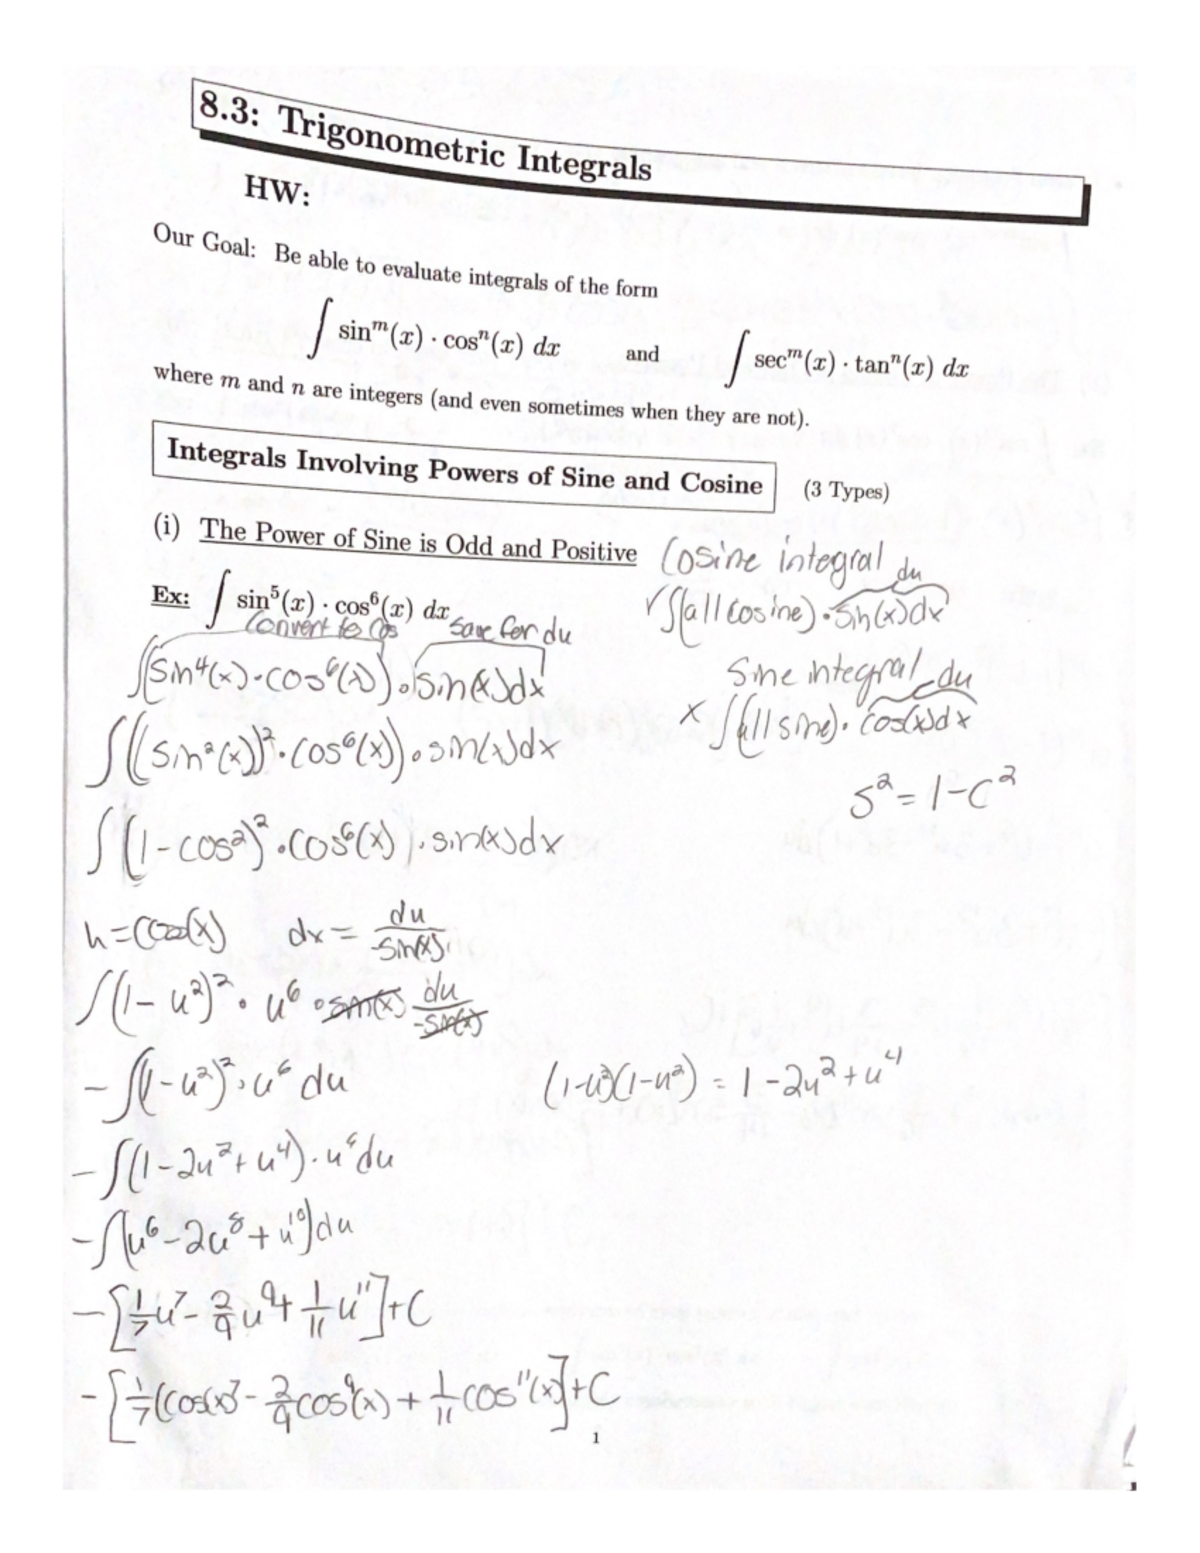 8.3: Trigonometric Integrals
HW:
Our Goal: Be able to evaluate integrals of the form
∫ sin^m(x) · cos^n(x) dx and ∫ sec^m(x) · tan^n(x) dx
where m and n are integers (and even sometimes when they are not).
Integrals Involving Powers of Sine and Cosine (3 Types)
(i) The Power of Sine is Odd and Positive
Cosine integral du
Ex: ∫ sin^5(x) · cos^6(x) dx
✓ ∫(all cosine) · sin(x)dx
Convert to Cos save for du
∫(sin^4(x) · cos^6(x)) · sin(x)dx
Sine integral du
x ∫(all sine) · cos(x)dx
∫((sin^2(x))^2 · cos^6(x)) · sin(x)dx
s^2 = 1-c^2
∫(1-cos^2)^2 · cos^6(x)) · sin(x)dx
u = cos(x) dx = du/-sin(x)
∫(1-u^2)^2 · u^6 · sin(x) du/-sin(x)
-∫(1-u^2)^2 · u^6 du (1-u^2)(1-u^2) = 1-2u^2+u^4
-∫(1-2u^2+u^4) · u^6 du
-∫(u^6-2u^8+u^10)du
-[1/7 u^7 - 2/9 u^9 + 1/11 u^11]+C
-[1/7(cos(x)^7 - 2/9 cos^9(x) + 1/11 cos^11(x)]+C
1